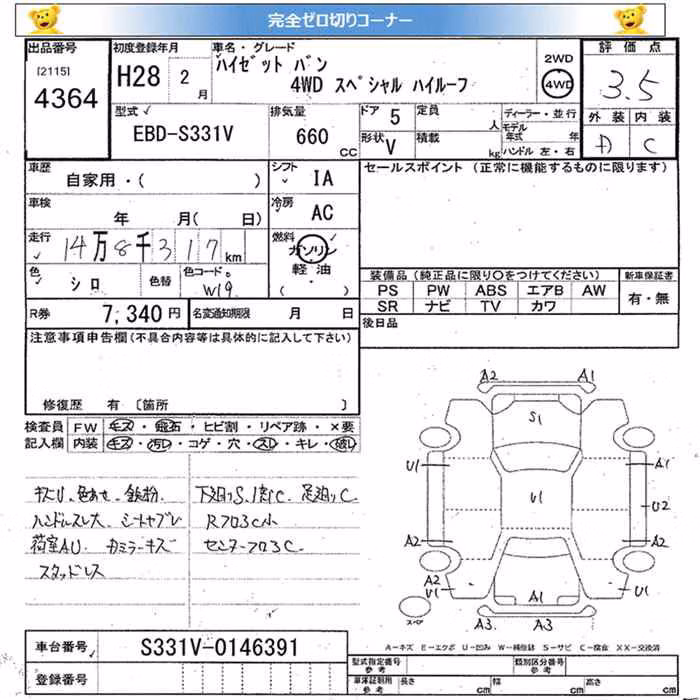 完全ゼロ切りコーナー
出品番号
[2115]
4364
初度登録年月
H28 2 月
車名・グレード
ハイゼット バン
4WD スペシャル ハイルーフ
2WD
4WD
評価点
3.5
外装 内装
D C
型式
EBD-S331V
排気量
660 CC
ドア 5
形状 V
定員 人
積載 kg
ディーラー・並行
モデル年式 年
ハンドル 左・右
車歴
自家用・( )
シフト IA
車検 年 月( 日)
冷房 AC
走行
14万8千317km
燃料 ガソリン
軽油・
( )
色 シロ
色替
色コード。
W19
R券 7,340円
名変通知期限 月 日
セールスポイント (正常に機能するものに限ります)
装備品(純正品に限り○をつけてください)
新車保証書
PS PW ABS エアB AW
SR ナビ TV カワ
有・無
後日品
注意事項申告欄(不具合内容等は具体的に記入して下さい)
修復歴 有 〔箇所 〕
検査員記入欄
FW キズ・飛石・ヒビ割・リペア跡・×要
内装 キズ・汚レ・コゲ・穴・スレ・キレ・破レ
キズU、色あせ、鉄粉
ハンドルスレ大 シートヤブレ
荷室AU.
スタッドレス
下廻りS、 足廻りC
R フロアC小
センターフロアC
A2 A1
S1
U1 A1
U1
U2
A2 A2
A2
U1
A1
U1
スペア
A3 A3
A－キズ E－エクボ U－凹み W－補修跡 S－サビ C－腐食 XX－交換済
車台番号
S331V-0146391
登録番号
型式指定番号
参考
類別区分番号
参考
車庫証明用
参考
長さ cm 幅 cm 高さ cm